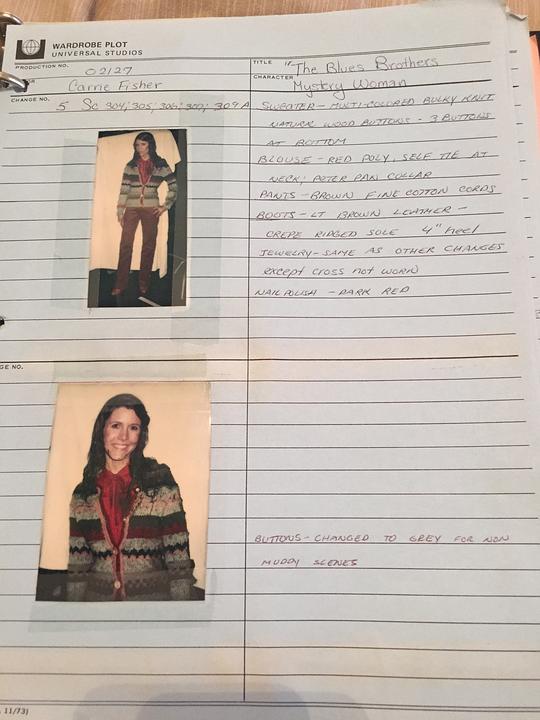 WARDROBE PLOT
UNIVERSAL STUDIOS
PRODUCTION NO. 02127
TITLE The Blues Brothers
Carrie Fisher
CHARACTER Mystery Woman
CHANGE NO. 5 Sc 304, 305, 306, 309A
SWEATER - MULTI-COLORED BULKY KNIT
NATURAL WOOD BUTTONS - 3 BUTTONS
AT BOTTOM
BLOUSE - RED POLY, SELF TIE AT
NECK; PETER PAN COLLAR
PANTS - BROWN FINE COTTON CORDS
BOOTS - LT BROWN LEATHER -
CREPE RIDGED SOLE 4" heel
JEWELRY - SAME AS OTHER CHANGES
except cross not worn
NAIL POLISH - DARK RED
GE NO.
BUTTONS - CHANGED TO GREY FOR NON
MUDDY SCENES
11/73)